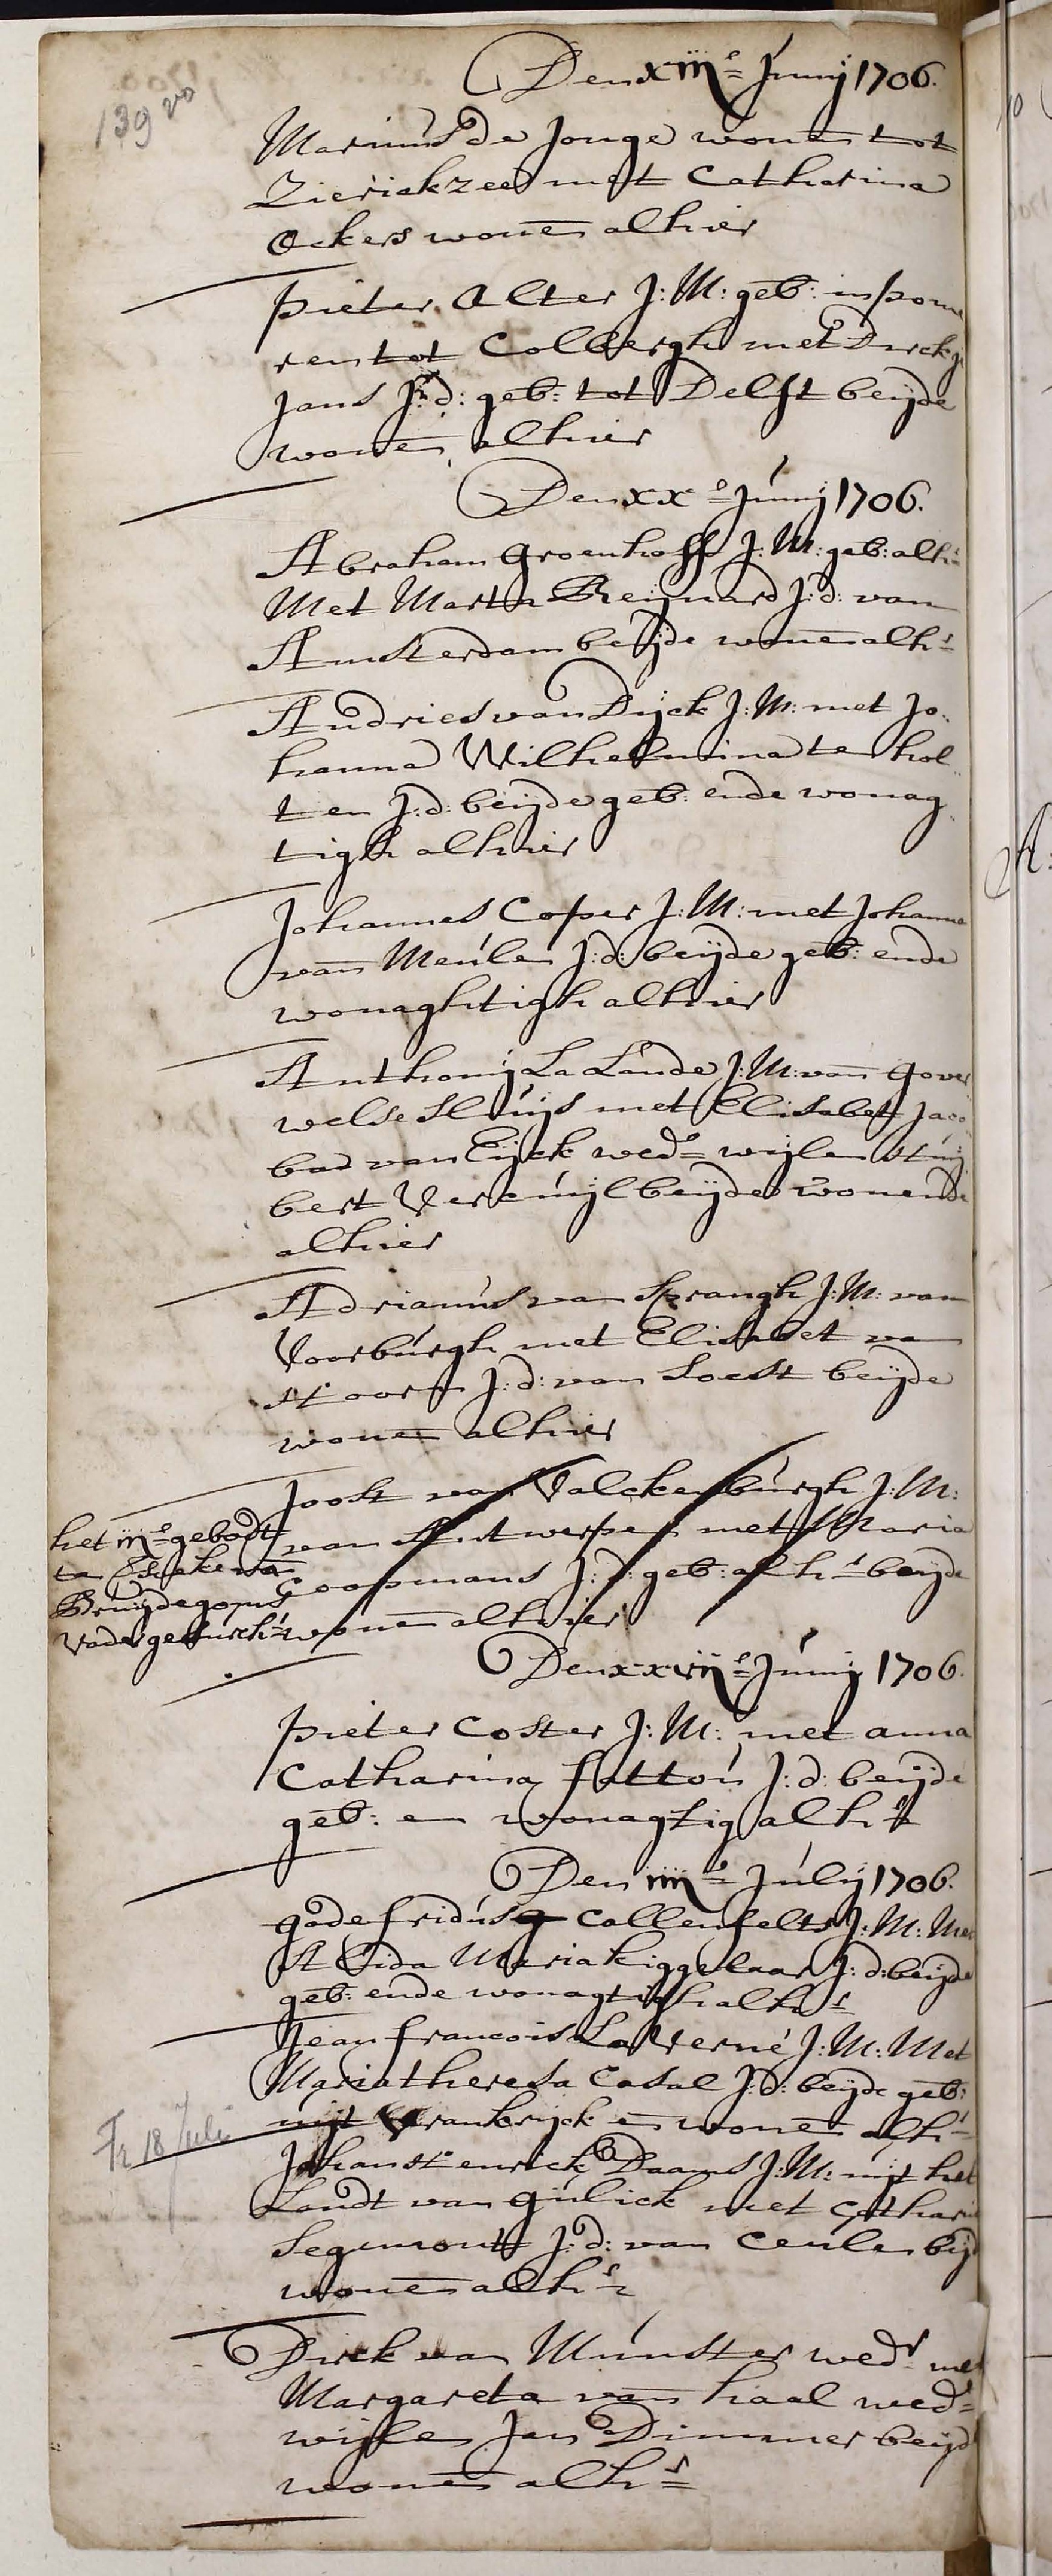 139 vo
Den xiiie Junij 1706.
Marinus de Jonge wonen tot
Zierickzee met Catharina
Ockers wonen alhier
Pieter Alter J: M: geb: in pome
ren tot Colbergh met Dirckj
Jans J: d: geb: tot Delft beijde
wonen alhier
Den xxe Junij 1706.
Abraham Groenhoff J: M: geb: alhr
Met Marta Reijnard J: d: van
Amsterdam beijde wonen alhr
Andries van Dijck J: M: met Jo.
hanna Wilhelmina ten hol
ten J: d: beijde geb: ende wonag
tigh alhier
Johannes Coper J: M: met Johanna
van Meúlen J: d: beijde geb: ende
wonaghtigh alhier
Anthonij La Lande J: M: van Gover
welse Sluijs met Elisabet Jaco
ba van Eijck wede wijlen Huij
bert Vercuijl beijde wonende
alhier
Adrianús van Sprangh J: M: van
Voorbúrgh met Elisabet va
Hoorn J: d: van Soest beijde
wonen alhier
Joost van Valckenbúrgh J: M:
van Antwerpen met Maria
Coopmans J: d: geb: alhr beijde
wonen alhier
het iiie gebodt
ten
Bruijdegoms
Vader
Den xxviie Junij 1706.
Pieter Coster J: M: met anna
Catharina fatton J: d: beijde
geb: en wonagtig alhr
Den iiiie Júlij 1706.
godefridús Callenfelts J: M: Met
Alida Maria kiggelaar J: d: beijde
geb: ende wonagtigh alhr
Jean francois La Verné J: M: Met
Maria theresa Casal J: d: beijde geb:
uijt Vrankrijck en wonen alhr
Tr 18 Juli
Johan Henrick Daams J: M: uijt het
Landt van gúlick met Catharin
Segemont J: d: van Ceulen beijd
wonen alhr
Dirck van Múnster wedr met
Margareta van haal wede
wijlen Jan Dimmer beijd
wonen alhr